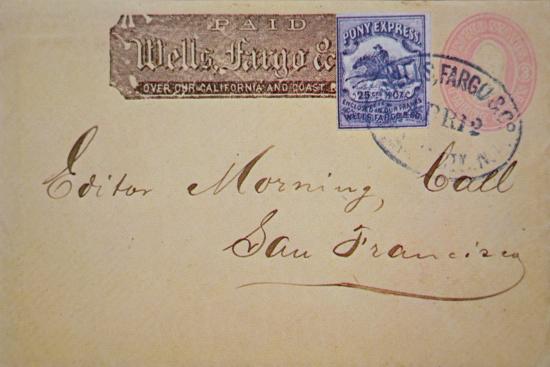 PAID
Wells, Fargo &
OVER OUR CALIFORNIA AND COAST
PONY EXPRESS
25 CTS
ENCLOSED IN OUR FRANKS
WELLS, FARGO & CO.
LLS, FARGO & CO
PR 12
Editor Morning, Call
San Francisco